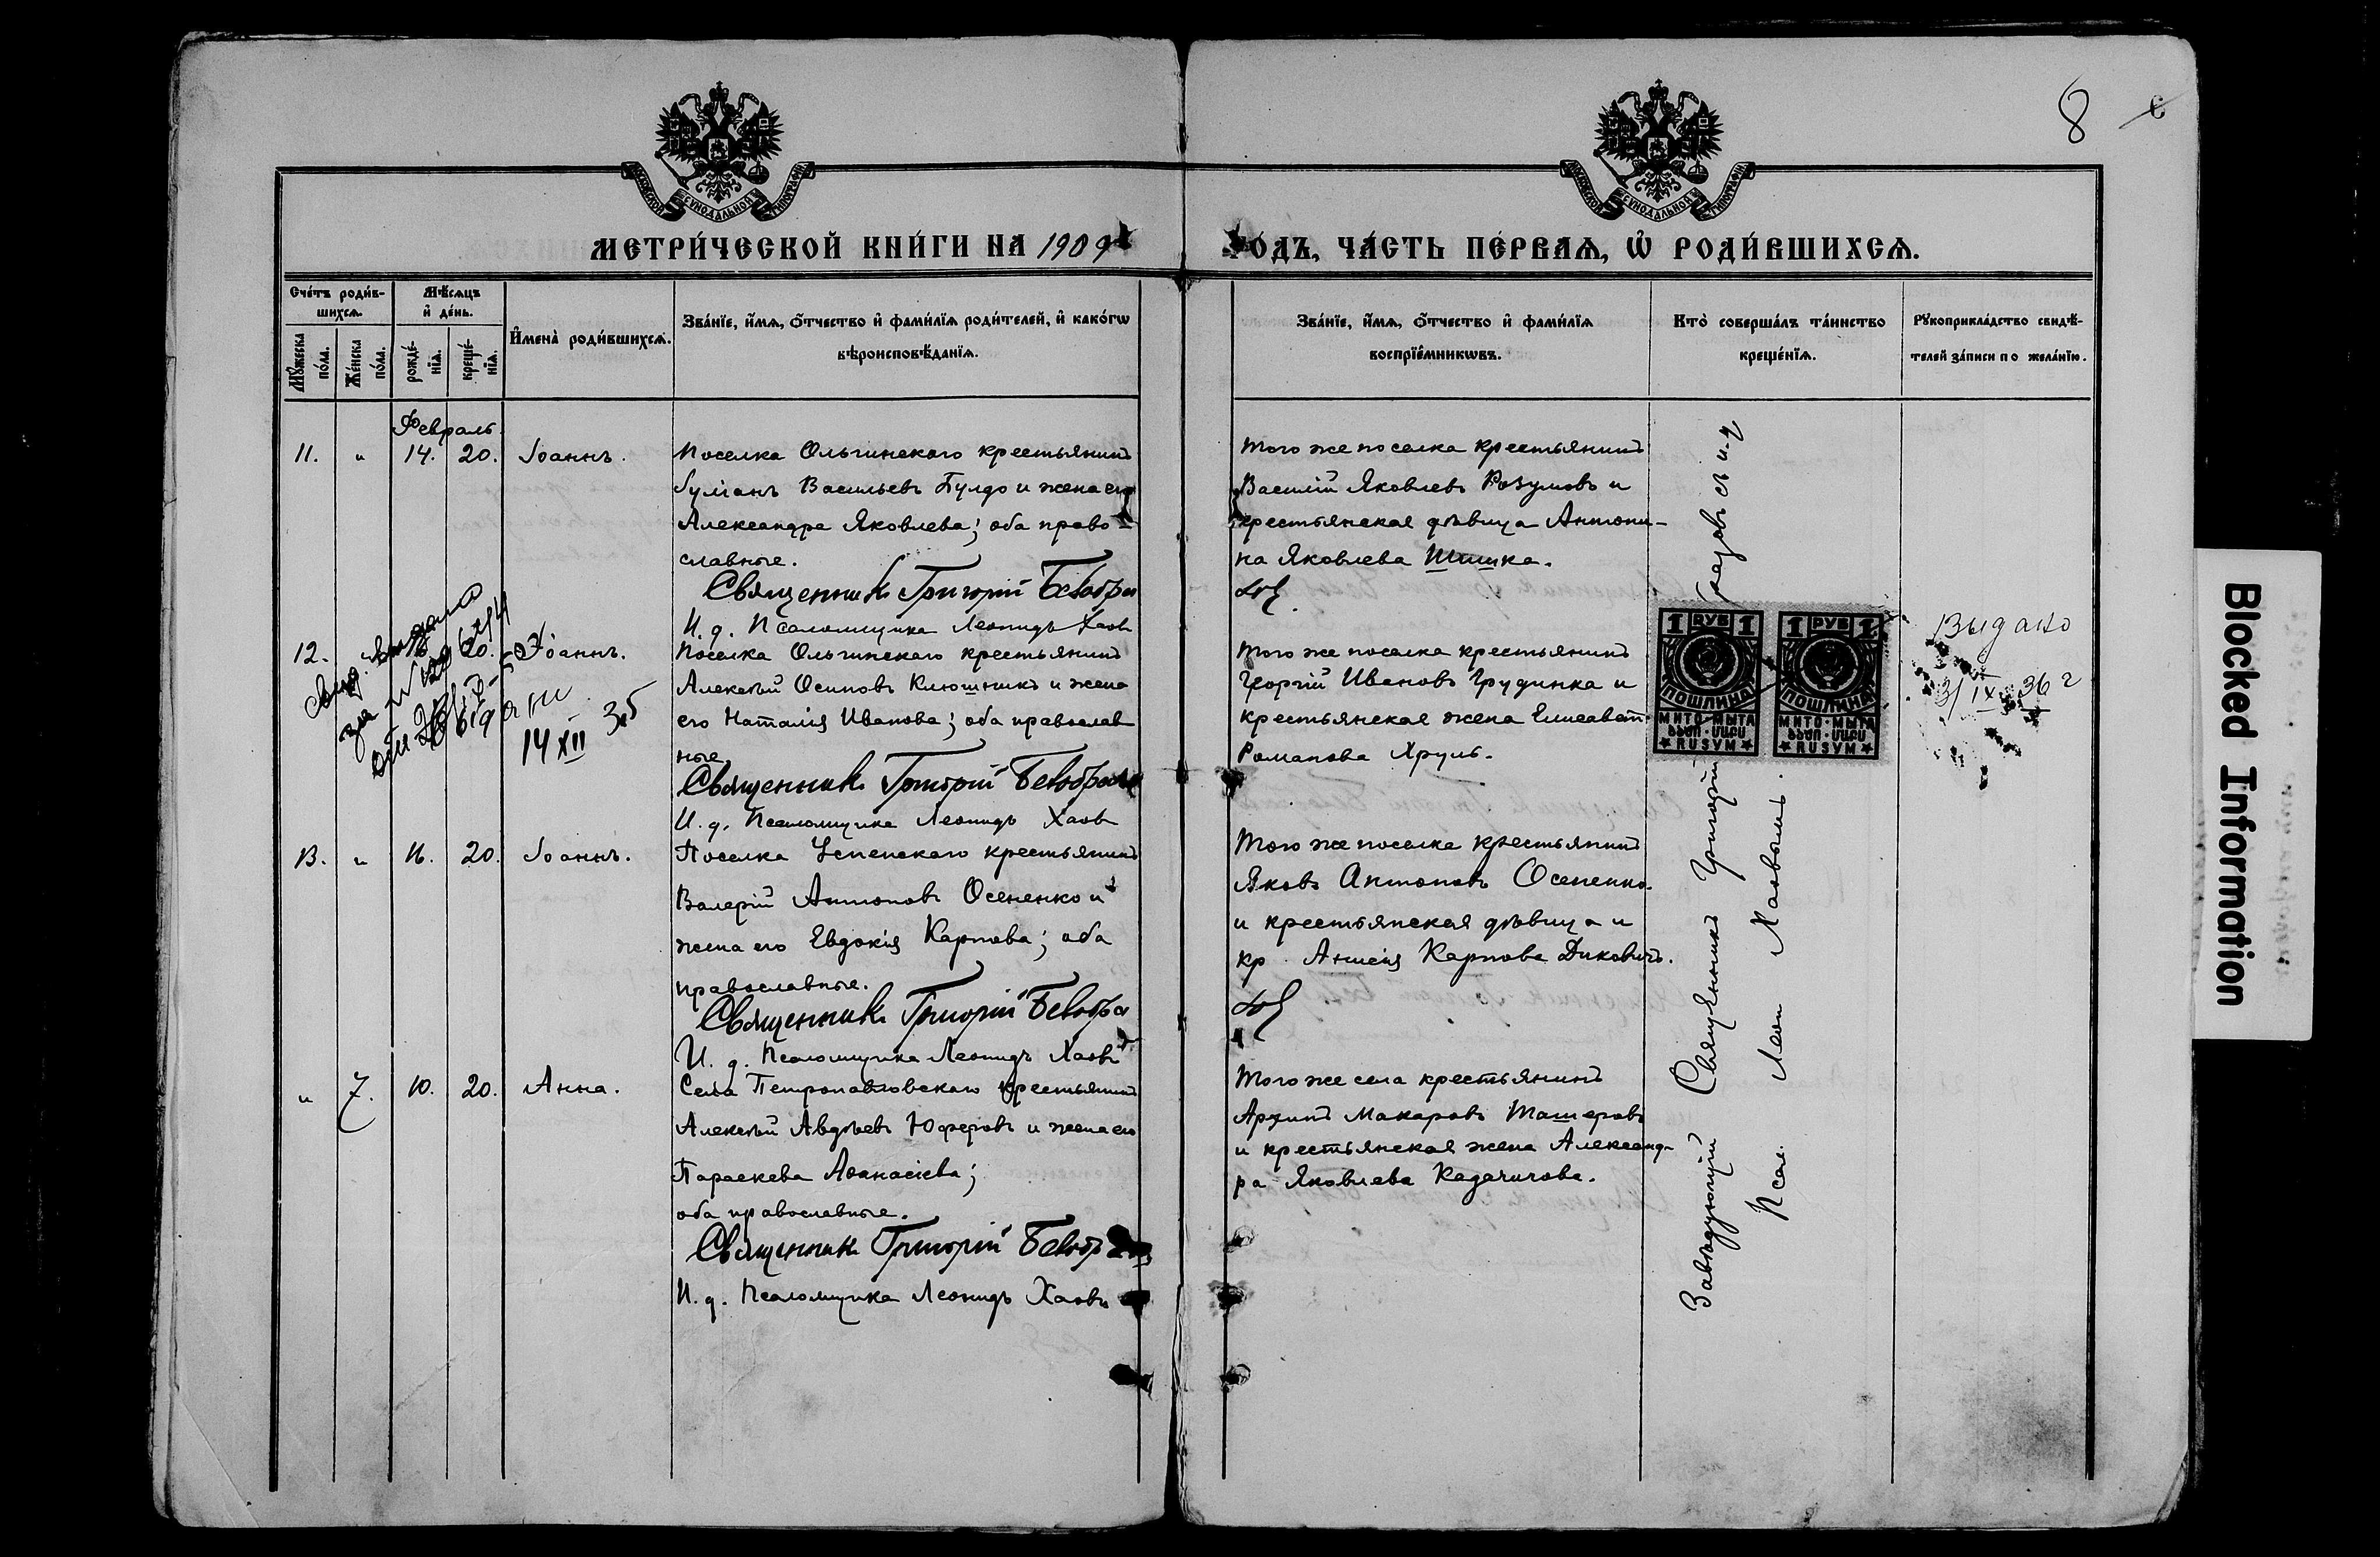 8
МОСКОВСКОЙ СУНОДАЛЬНОЙ ТИПОГРАФИИ
МОСКОВСКОЙ СУНОДАЛЬНОЙ ТИПОГРАФИИ
МЕТРИ́ЧЕСКОЙ КНИ́ГИ НА 1909
ГО́ДЪ, ЧА́СТЬ ПЕ́РВАѦ, Ѡ҆ РОДИ́ВШИХСѦ.
Сче́тъ роди́в-
шихсѧ.
Мѣ́сѧцъ
и҆ де́нь.
Мꙋ́жеска
по́ла.
Же́нска
по́ла.
рожде́-
нїѧ.
креще́-
нїѧ.
И҆мена̀ роди́вшихсѧ.
Зва́нїе, и҆́мѧ, ѻ҆́тчество и҆ фами́лїѧ роди́телей, и҆ како́гѡ
вѣроисповѣ́данїѧ.
Зва́нїе, и҆́мѧ, ѻ҆́тчество и҆ фами́лїѧ
воспрїе́мникѡвъ.
Кто̀ соверша́лъ та́инство
креще́нїѧ.
Рꙋкоприкла́дство свидѣ́-
телей за́писи по жела́нїю.
Февраль.
11. " 14. 20. Іоаннъ.
Поселка Ольгинскаго крестьянинъ
Іуліанъ Васильевъ Булдо и жена его
Александра Яковлева; оба право-
славные.
Священникъ Григорій
И. д. Псаломщика Леонидъ Хаов
того же поселка крестьянинъ
Василій Яковлевъ Розумовъ и
крестьянская дѣвица Антони-
на Яковлева Шишка.
12. 20. Іоаннъ.
Поселка Ольгинскаго крестьянинъ
Алексѣй Осиповъ Клюшникъ и жена
его Наталія Иванова; оба православ
ные
Священникъ Григорій
И. д. Псаломщика Леонидъ Хаов
того же поселка крестьянинъ
Георгій Ивановъ Грудинка и
крестьянская жена Елисавет.
Романова Хруль.
свид. выдано
за №
14 XII 36
13. " 16. 20. Іоаннъ.
Поселка Успенскаго крестьянинъ
Валерій Антоновъ Осененко и
жена его Евдокія Карпова; оба
православные.
Священникъ Григорій
И. д. Псаломщика Леонидъ Хаовъ
Того же поселка крестьянинъ
Яковъ Антоновъ Осененко
и крестьянская дѣвица и
кр. Анисія Карпова Диковичъ.
" 7. 10. 20. Анна.
Села Петропавловскаго крестьянинъ
Алексѣй Авдѣевъ Юферовъ и жена его
Параскева Аѳанасіева;
оба православные.
Священникъ Григорій
И. д. Псаломщика Леонидъ Хаовъ
Того же села крестьянинъ
Архипъ МакаровъТашеровъ
и крестьянская жена Александ-
ра Яковлева Кадачигова.
Завѣдующій Священникъ Григорій
Псал. Леон Хаовымъ.
1 РУБ 1
ПОШЛИНА
МИТО·МЫТА
RUSYM
1 РУБ 1
ПОШЛИНА
МИТО·МЫТА
RUSYM
Выдано
3/IX 36 г
Blocked Information